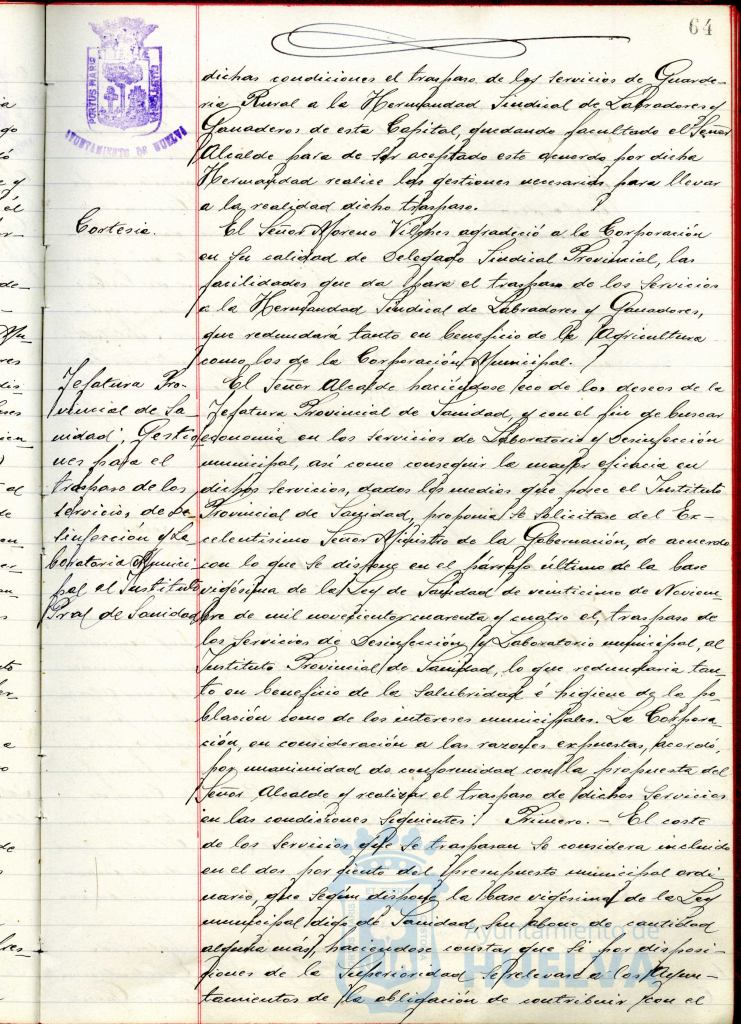 64
PORTUS MARIS
AYUNTAMIENTO DE HUELVA
dichas condiciones el traspaso de los servicios de Guarde-
ria Rural a la Hermandad Sindical de Labradores y
Ganaderos de esta Capital, quedando facultado el Señor
Alcalde para de ser aceptado este acuerdo por dicha
Hermandad realice las gestiones necesarias para llevar
a la realidad dicho traspaso.
Cortesia.
El Señor Moreno Vilches agradeció a la Corporación
en su calidad de Delegado Sindical Provincial, las
facilidades que da para el traspaso de los Servicios
a la Hermandad Sindical de Labradores y Ganaderos,
que redundará tanto en beneficio de la Agricultura
como los de la Corporación Municipal.
Jefatura Pro-
vincial de Sa-
nidad, Gestio
nes para el
traspaso de los
servicios de De-
sinfección y La-
boratorio Munici-
pal al Instituto
Pral de Sanidad
El Señor Alcalde haciéndose eco de los deseos de la
Jefatura Provincial de Sanidad, y con el fin de buscar
economia en los servicios de Laboratorio y Desinfección
municipal, asi como conseguir la mayor eficacia en
dichos servicios, dados los medios que posee el Instituto
Provincial de Sanidad, proponia se solicitase del Ex-
celentisimo Señor Ministro de la Gobernación, de acuerdo
con lo que se dispone en el párrafo último de la base
vigésima de la Ley de Sanidad de veinticinco de Noviem-
bre de mil novecientos cuarenta y cuatro el, traspaso de
los Servicios de Desinfección y Laboratorio municipal, al
Instituto Provincial de Sanidad, lo que redundaria tan-
to en beneficio de la Salubridad é higiene de la po-
blación como de los intereses municipales. La Corpora-
ción, en consideración a las razones expuestas, acordó,
por unanimidad de conformidad con la propuesta del
Señor Alcalde y realizar el traspaso de dichos Servicios
en las condiciones siguientes: Primero. - El coste
de los Servicios que se traspasan se considera incluido
en el dos por ciento del presupuesto municipal ordi-
nario, que según dispone la base vigésima de la Ley
municipal digo de Sanidad, se abone de cantidad
alguna más, haciéndose constar que si por disposi-
ciones de la Superioridad se relevase a los Ayun-
tamientos de la obligación de contribuir con el
Ayuntamiento de
HUELVA